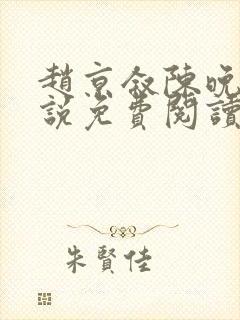 趙京叙陳晚
說免費閱讀
朱賢佳